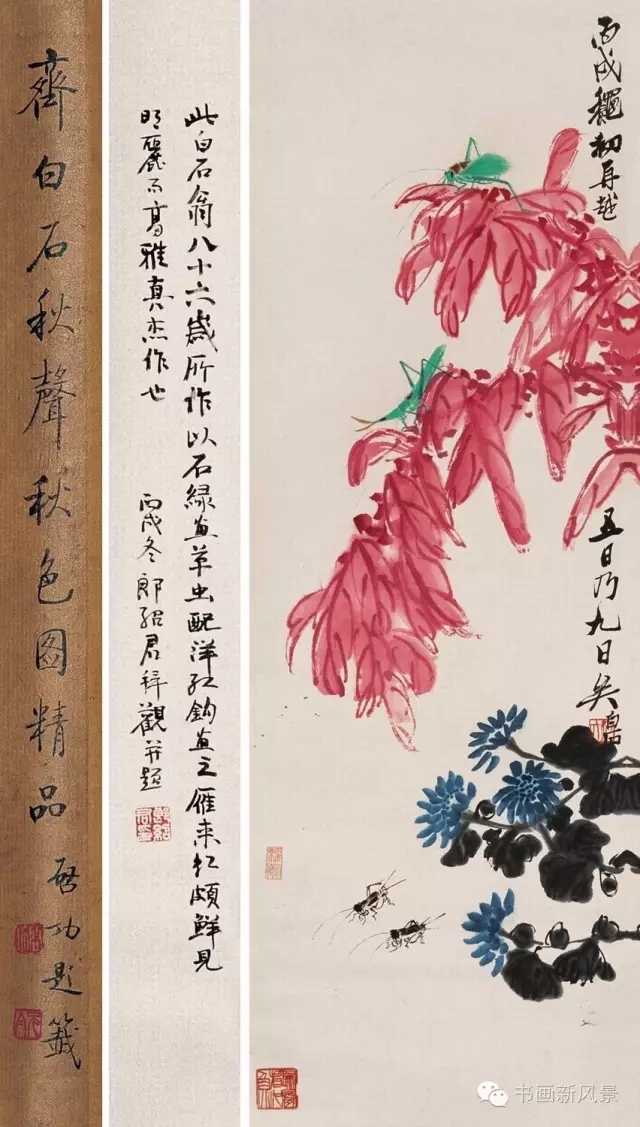 齊白石秋聲秋色圖精品
啓功題籤
此白石翁八十六歲所作以石緑畫草虫配洋紅鈎畫之雁来红頗鮮見
明麗而高雅真杰作也
丙戌冬郎紹君拜觀并題
丙戌龝初再越
五日乃九日矣
书画新风景